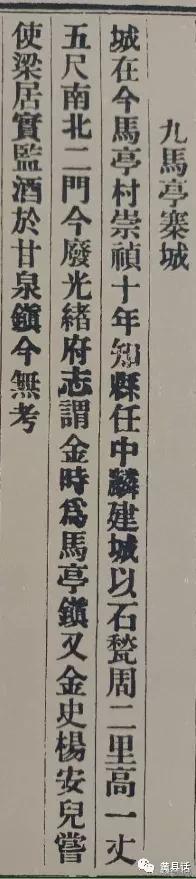 九馬亭寨城
城在今馬亭村崇禎十年知縣任中麟建城以石甃周二里高一丈
五尺南北二門今廢光緒府志謂金時爲馬亭鎮又金史楊安兒嘗
使梁居實監酒於甘泉鎮今無考
黄县话